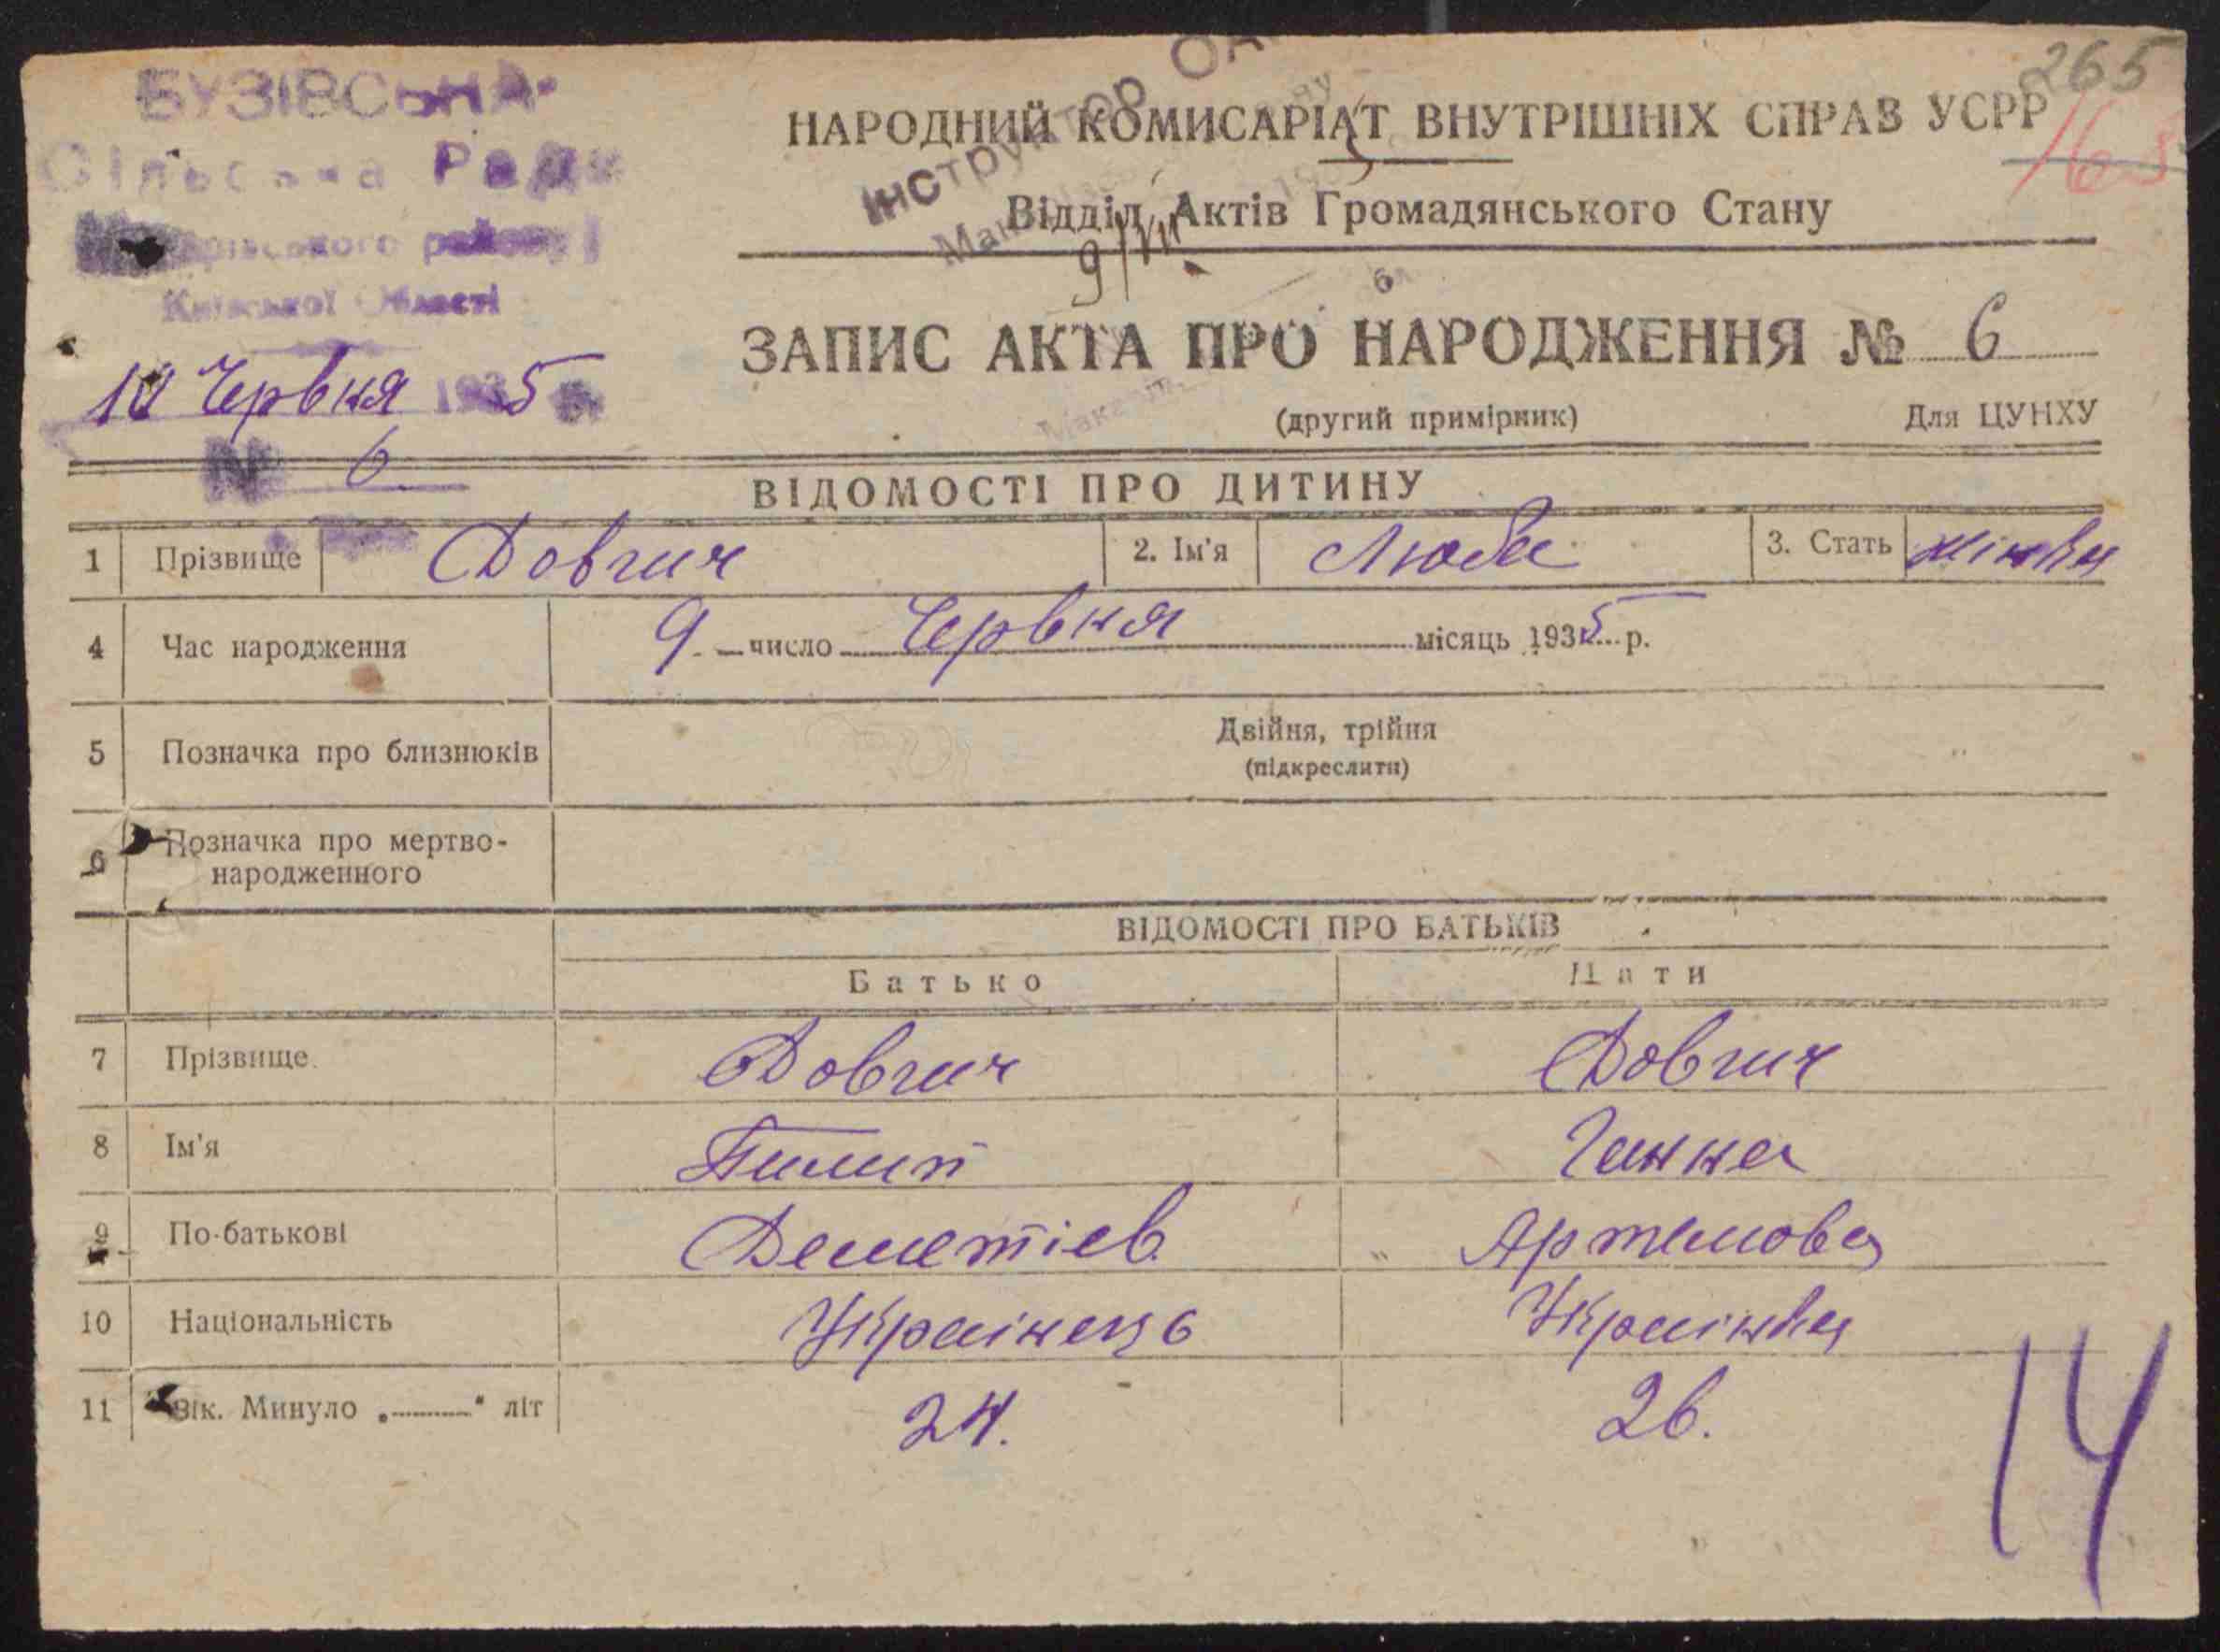 265
БУЗІВСЬКА
Сільська Рада
району
Київської Області
10 Червня 1935
№ 6
Інструктор
НАРОДНИЙ КОМИСАРІЯТ ВНУТРІШНІХ СПРАВ УСРР
Відділ Актів Громадянського Стану
9/VII
ЗАПИС АКТА ПРО НАРОДЖЕННЯ № 6
(другий примірник) Для ЦУНХУ
ВІДОМОСТІ ПРО ДИТИНУ
1 Прізвище Довгич 2. Ім'я Люба 3. Стать жінка
4 Час народження 9 число Червня місяць 1935 р.
5 Позначка про близнюків Двійня, трійня
(підкреслити)
6 Позначка про мертво-
народженного
ВІДОМОСТІ ПРО БАТЬКІВ
Батько Мати
7 Прізвище Довгич Довгич
8 Ім'я Пилип Ганна
9 По-батькові Деметіев Артемова
10 Національність Українець Українка
11 Вік. Минуло „ “ літ 24. 26.
14